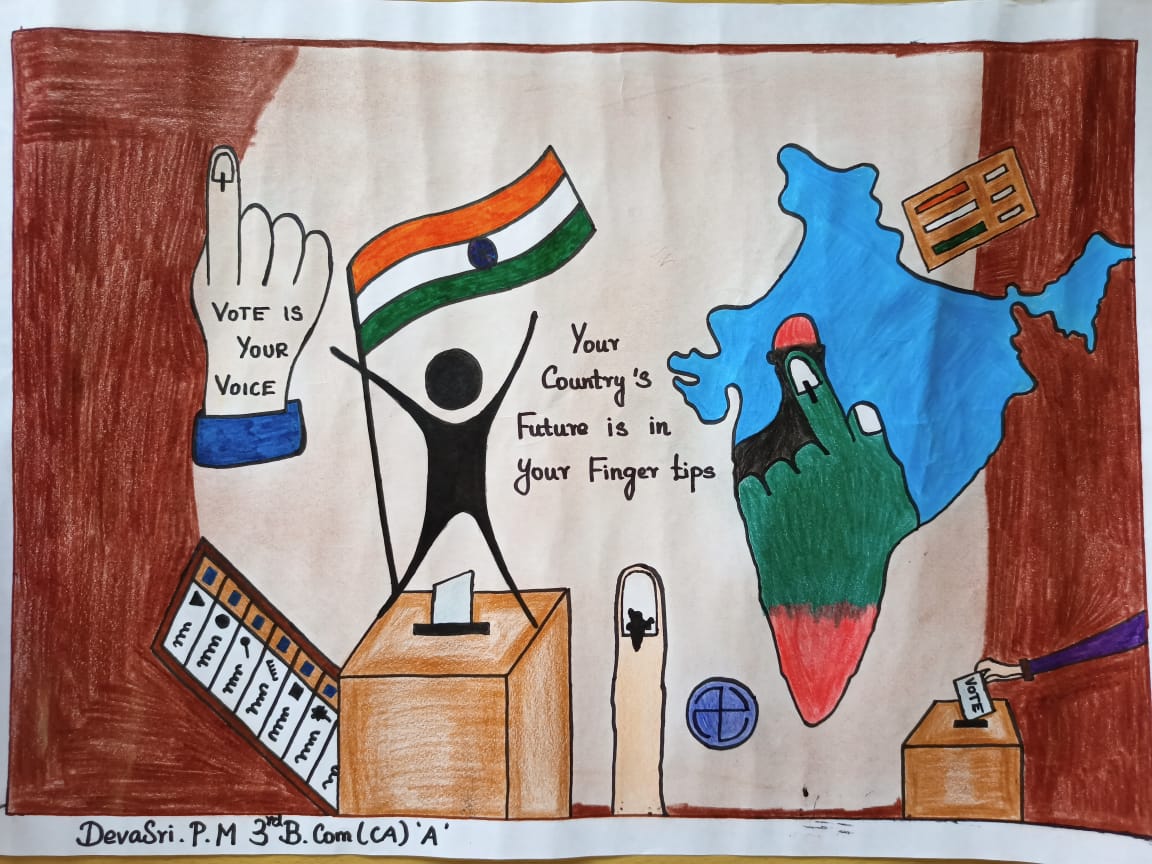 VOTE IS
YOUR
VOICE
Your
Country's
Future is in
Your Finger tips
VOTE
DevaSri. P. M 3rd B. Com (CA) 'A'